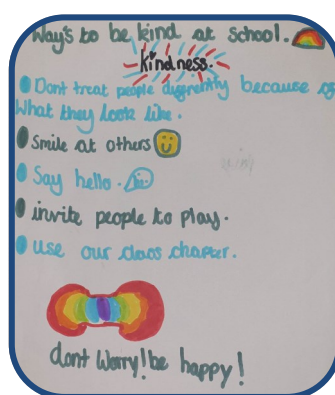 Way's to be kind at school.
kindness.
Dont treat people differently because of
What they look like.
Smile at others
Say hello.
invite people to play.
use our class chapter.
dont Worry! be happy!